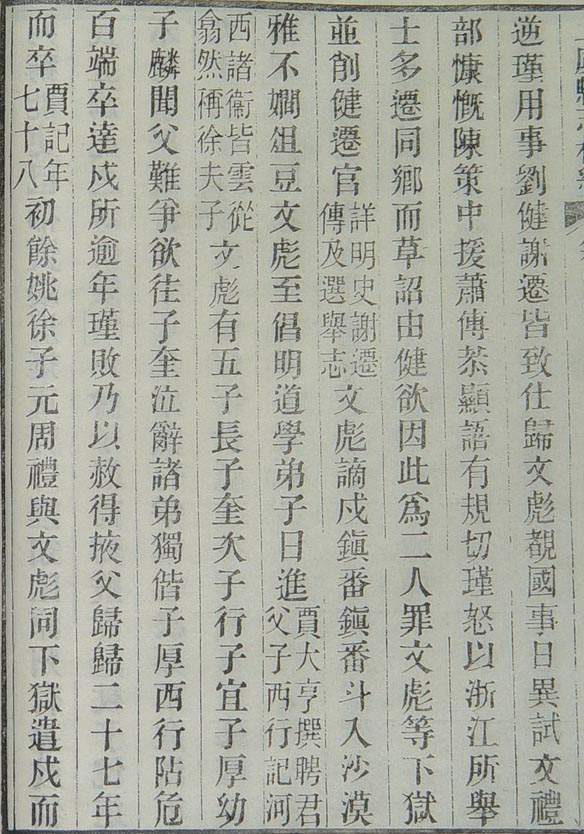 逆瑾用事劉健謝遷皆致仕歸文彪覩國事日異試文禮
部慷慨陳策中援蕭傳恭顯語有規切瑾怒以浙江所舉
士多遷同鄉而草詔由健欲因此爲二人罪文彪等下獄
並削健遷官詳明史謝遷傳及選舉志文彪謫戍鎮番鎮番斗入沙漠
雅不嫺俎豆文彪至倡明道學弟子日進賈大亨撰聘君父子西行記河
西諸衞皆雲從翕然稱徐夫子文彪有五子長子奎次子行子宜子厚幼
子麟聞父難爭欲往子奎泣辭諸弟獨偕子厚西行阽危
百端卒達戍所逾年瑾敗乃以赦得掖父歸歸二十七年
而卒賈記年七十八初餘姚徐子元周禮與文彪同下獄遣戍而